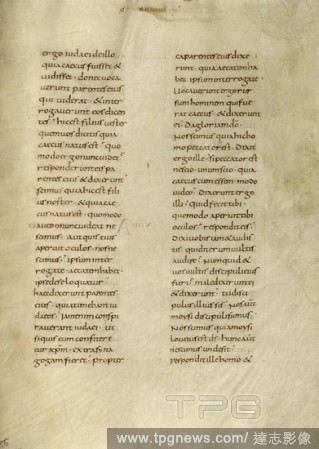 ergo iudaei deillo
quia caecus fuisset &
uidisset · donec uoca
uerunt parentes eius
qui uiderat · & inter
rogauerunt eos dicen
tes · hic est filius uester
quem uos dicitis quia
caecus natus est · quo
modo ergo nunc uidet
responderunt eis pa
rentes eius & dixerunt
scimus quia hic est fili
us noster & quia cae
cus natus est · quomodo
autem nunc uideat ne
scimus aut quis eius
aperuit oculos · nos ne
scimus ipsum inter
rogate aetatem habet
ipse de se loquatur
haec dixerunt parentes
eius quia timebant iu
daeos · Iam enim conspi
rauerant iudaei ut
si quis eum confitere
tur xpm · extra syna
gogam fieret · propter
ea parentes eius dixe
runt · quia aetatem ha
bet ipsum interrogate
uocauerunt ergo rur
sum hominem qui fue
rat caecus & dixerunt
ei · Da gloriam do
Nos scimus quia hic ho
mo peccator est · Dixit
ergo ille · si peccator est
nescio · unum scio · quia
caecus cum essem · modo
uideo · Dixerunt ergo
illi · quid fecit tibi
quomodo aperuit tibi
oculos · respondit eis
Dixi uobis iam & audis
tis quid iterum uultis
audire · Numquid &
uos uultis discipuli eius
fieri maledixerunt ei
& dixerunt · tu disci
pulus illius sis · Nos aut
moysi discipuli sumus
Nos scimus quia moysi
locutus est ds · hunc aut
nescimus unde sit
respondit ille homo &
56
TPG
www.tpgnews.com / 達志影像